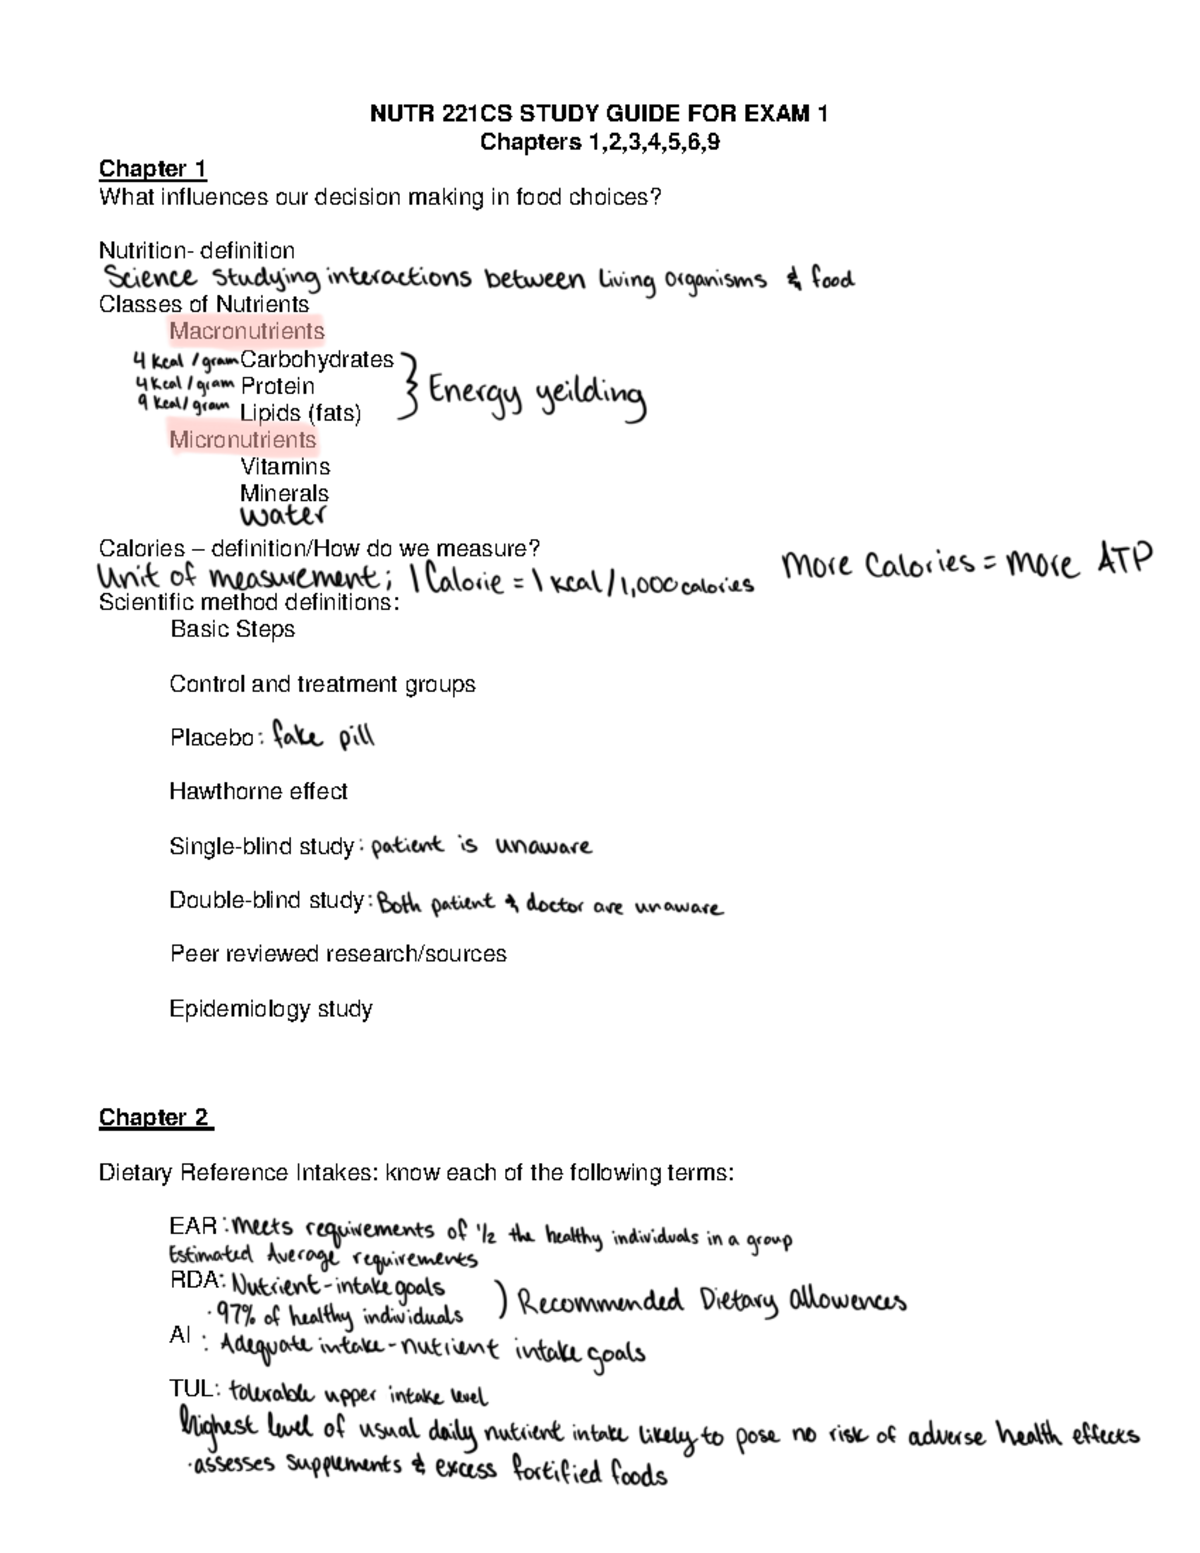 NUTR 221CS STUDY GUIDE FOR EXAM 1
Chapters 1,2,3,4,5,6,9
Chapter 1
What influences our decision making in food choices?
Nutrition- definition
Science studying interactions between living organisms & food
Classes of Nutrients
Macronutrients
4 kcal/gram Carbohydrates
4 kcal/gram Protein
} Energy yeilding
9 kcal/gram Lipids (fats)
Micronutrients
Vitamins
Minerals
Water
Calories – definition/How do we measure?
Unit of measurement; 1 Calorie = 1 kcal/1,000 calories
More Calories = more ATP
Scientific method definitions:
Basic Steps
Control and treatment groups
Placebo: fake pill
Hawthorne effect
Single-blind study: patient is unaware
Double-blind study: Both patient & doctor are unaware
Peer reviewed research/sources
Epidemiology study
Chapter 2
Dietary Reference Intakes: know each of the following terms:
EAR: meets requirements of 1/2 the healthy individuals in a group
Estimated Average requirements
RDA: Nutrient-intake goals
) Recommended Dietary allowences
· 97% of healthy individuals
AI : Adequate intake - nutrient intake goals
TUL: tolerable upper intake level
highest level of usual daily nutrient intake likely to pose no risk of adverse health effects
· assesses supplements & excess fortified foods